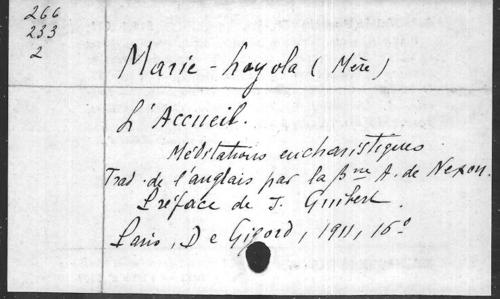 266
233
2
Marie-Loyola (Mère)
L'Accueil.
Méditations eucharistiques
Trad. de l'anglais par la Bne A. de Nexon.
Préface de J. Guibert.
Paris, De Gigord, 1911, 16°